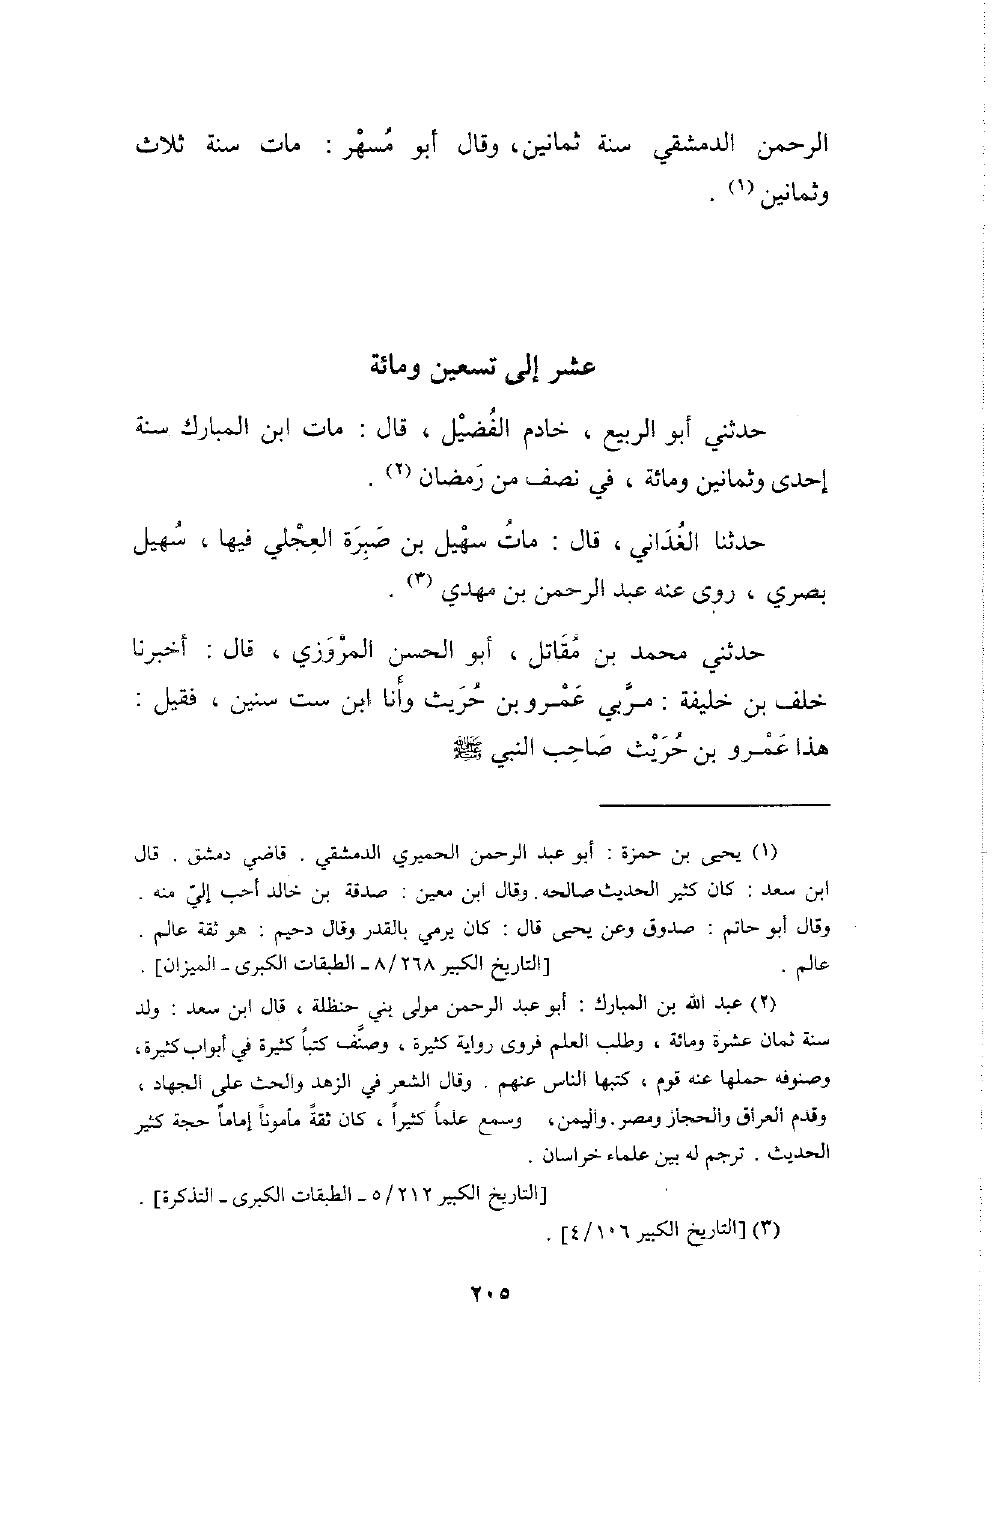 الرحمن الدمشقي سنة ثمانين، وقال أبو مُسهْر : مات سنة ثلاث
وثمانين (١) .
عشر إلى تسعين ومائة
حدثني أبو الربيع ، خادم الفُضيْل ، قال : مات ابن المبارك سنة
إحدى وثمانين ومائة ، في نصف من رَمضان (٢) .
حدثنا الغُدَاني ، قال : ماتُ سهْيل بن صَبِرَة العِجْلي فيها ، سُهيل
بصري ، روى عنه عبد الرحمن بن مهدي (٣) .
حدثني محمد بن مُقَاتل ، أبو الحسن المرْوَزي ، قال : أخبرنا
خلف بن خليفة : مرَّبي عَمْرو بن حُرَيث وأَنا ابن ست سنين ، فقيل :
هذا عَمْرو بن حُرَيْث صَاحِب النبي ﷺ
(١) يحيى بن حمزة : أبو عبد الرحمن الحميري الدمشقي . قاضي دمشق . قال
ابن سعد : كان كثير الحديث صالحه. وقال ابن معين : صدقة بن خالد أحب إليّ منه .
وقال أبو حاتم : صدوق وعن يحيى قال : كان يرمي بالقدر وقال دحيم : هو ثقة عالم .
عالم . [التاريخ الكبير ٨/٢٦٨ ـ الطبقات الكبرى ـ الميزان] .
(٢) عبد الله بن المبارك : أبو عبد الرحمن مولى بني حنظلة ، قال ابن سعد : ولد
سنة ثمان عشرة ومائة ، وطلب العلم فروى رواية كثيرة ، وصنَّف كتباً كثيرة في أبواب كثيرة،
وصنوفه حملها عنه قوم ، كتبها الناس عنهم . وقال الشعر في الزهد والحث على الجهاد ،
وقدم العراق والحجاز ومصر. واليمن، وسمع علماً كثيراً ، كان ثقةً مأموناً إماماً حجة كثير
الحديث . ترجم له بين علماء خراسان .
[التاريخ الكبير ٥/٢١٢ ـ الطبقات الكبرى ـ التذكرة] .
(٣) [التاريخ الكبير ٤/١٠٦] .
٢٠٥